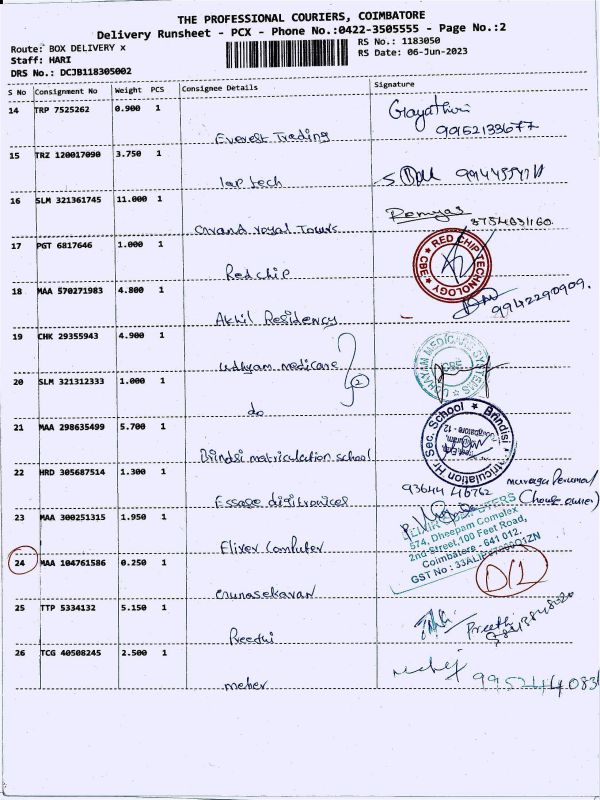 THE PROFESSIONAL COURIERS, COIMBATORE
Delivery Runsheet - PCX - Phone No.:0422-3505555 - Page No.:2
Route: BOX DELIVERY x
RS No.: 1183050
Staff: HARI
RS Date: 06-Jun-2023
DRS No.: DCJB118305002
S No Consignment No Weight PCS Consignee Details Signature
14 TRP 7525262 0.900 1 Everest Trading Gayathri 9952133677
15 TRZ 120017090 3.750 1 lap tech
16 SLM 321361745 11.000 1 Grand royal Tours Remyas
17 PGT 6817646 1.000 1 Redchip
RED CHIP TECHNOLOGY
CBE
18 MAA 570271983 4.800 1 Akhil Residency 9942290909.
19 CHK 29355943 4.900 1 Udhyam medicare
UDHAYAM MEDICARE SYSTEMS
CBE
20 SLM 321312333 1.000 1 do 2
21 MAA 298635499 5.700 1 Brindsi matriculation school
Brindisi Matriculation Hr Sec. School
22 HRD 305687514 1.300 1 Essage digitronics 93644 46762
23 MAA 300251315 1.950 1 Elixer Computer
574, Dheepam Complex
2nd Street, 100 Feet Road,
Coimbatore - 641 012.
GST No :
24 MAA 104761586 0.250 1 Gunasekaran D/L
25 TTP 5334132 5.150 1 Preethi Preethi
26 TCG 40508245 2.500 1 meher